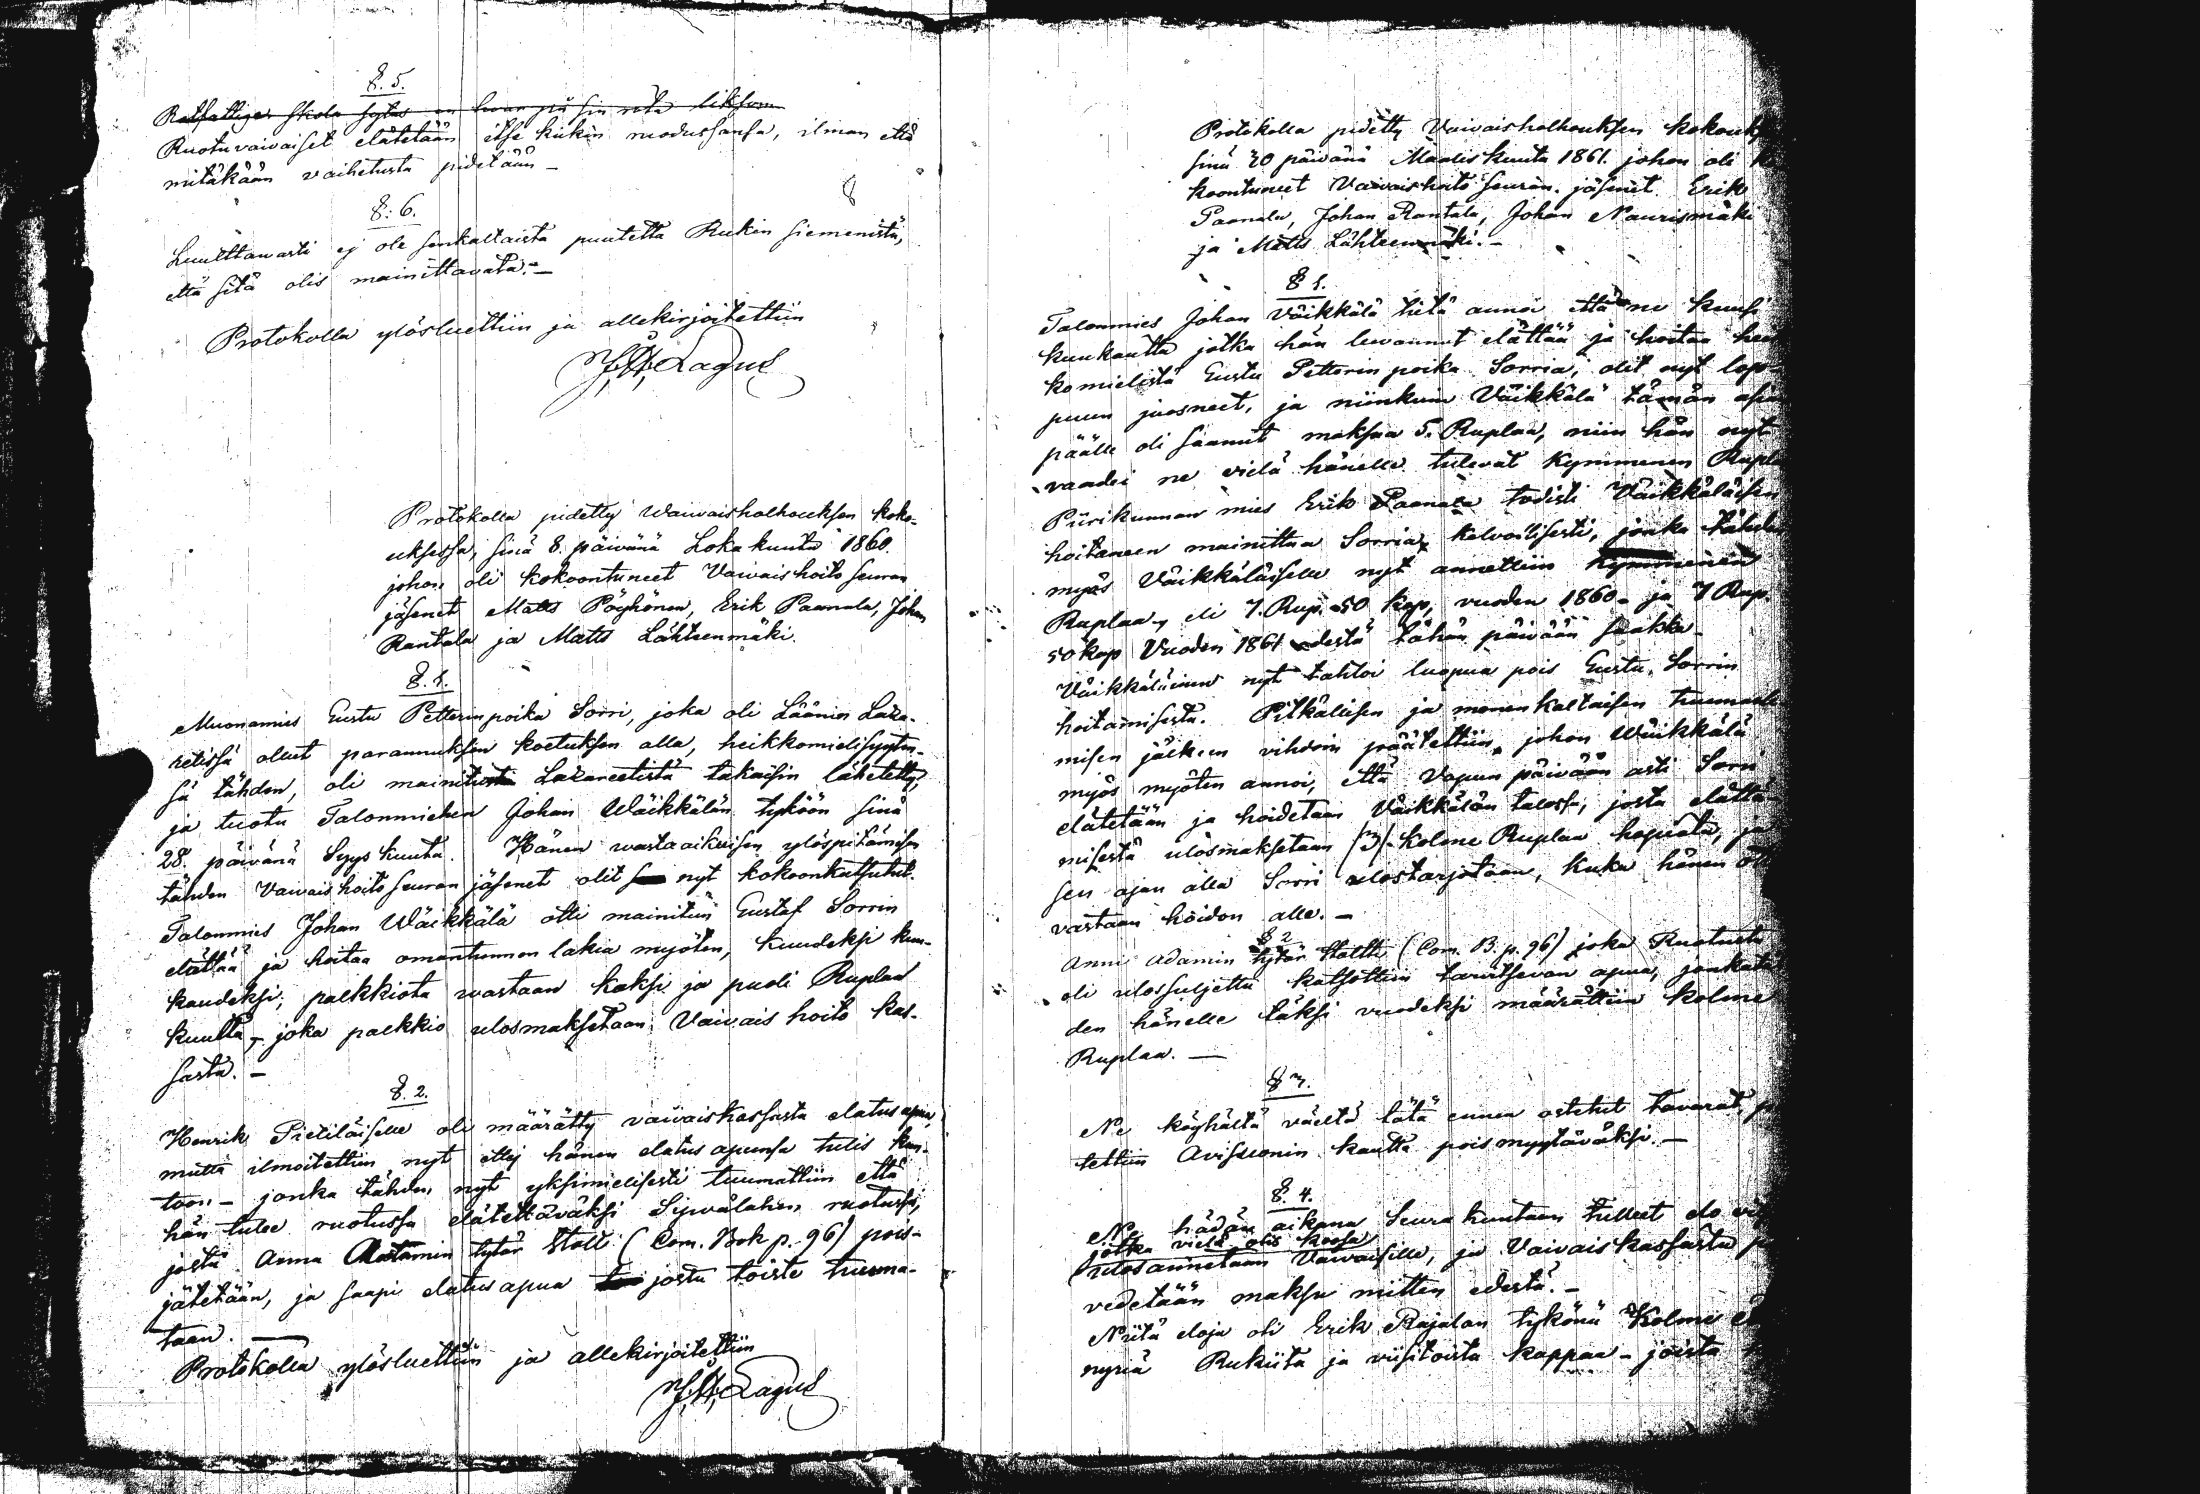 §. 5.
Rotfattiga skola
Ruotuvaivaiset elätetään itse kukin ruodussansa, ilman että
mitäkään vaihetusta pidetään –
§: 6.
Luulttavasti ej ole senkaltaista puutetta Rukin siemenistä,
että sitä olis mainittavata. –
Protokolla ylösluettiin ja allekirjoitettiin
Lagus
Protokolla pidetty Waivaisholhouksen koko-
uksessa, sinä 8. päivänä Lokakuuta 1860.
johon oli kokoontuneet Vaivaishoito seuran
jäsenet Matts Pöyhönen, Erik Paanala, Johan
Rantala ja Matts Lähteenmäki.
§. 1.
Muonamies Gustu Petterinpoika Sorri, joka oli Läänin Laza-
retissä ollut parannuksen koetuksen alla, heikkomielisyyten-
sä tähden, oli mainitusta Lazareetistä takaisin lähetetty,
ja tuotu Talonmiehen Johan Wäikkälän tyköön sinä
28. päivänä Syyskuuta. Hänen wastaaikuisen ylöspitämisen
tähden Vaivaishoito seuran jäsenet olit nyt kokoonkutsutut.
Talonmies Johan Wäikkälä otti mainitun Gustaf Sorrin
elättää ja hoitaa omantunnon lakia myöten, kuudeksi kuu-
kaudeksi; palkkiota wastaan kaksi ja puoli Ruplaa
kuulta, – joka palkkio ulosmaksetaan Vaivaishoito kas-
sasta. –
§. 2.
Henrik Pietiläiselle oli määrätty vaivaiskassasta elatusapua,
mutta ilmoitettiin nyt ettej hänen elatus apunsa tulis kun-
toon – jonka tähden nyt yksimielisesti tuumattiin että
hän tulee ruotussa elätettäväksi Sipwälahen ruotussa,
josta Anna Aatamin tytär Stolt (Com. Bok p. 96) pois-
jätetään, ja saapi elatus apua josta toiste tuuma-
taan. –
Protokolla ylösluettiin ja allekirjoitettiin
Lagus
Protokolla pidetty Vaivaisholhouksen
sinä 20 päivänä Maaliskuuta 1861. johon oli
koontuneet Vaivaishoito seuran jäsenet Erik
Paanala, Johan Rantala, Johan Naurismäki
ja Matts Lähteenmäki. –
§ 1.
Talonmies Johan Väikkälä tietä annoi että ne kuusi
kuukautta jotka hän luvannut elättää ja hoitaa hei-
komielistä Gustu Petterinpoika Sorria, olit nyt lop-
puun juosneet, ja niinkuin Väikkälä tämän
päälle oli saanut maksua 5. Ruplaa, niin hän nyt
vaadei ne vielä hänelle tulevat Kymmenen
Piirikunnan mies Erik Paanala todisti Väikkäläisen
hoitaneen mainittua Sorria kelvollisesti, jonka
myös Väikkäläiselle nyt annettiin Kymmenen
Ruplaa, eli 7. Rup. 50 kop, vuoden 1860 – ja 7 Rup.
50 kop Vuoden 1861 edestä tähän päivään saakka –
Väikkäläinen nyt tahtoi luopua pois Gustu Sorrin
hoitamisesta. Pitkällisen ja monenkaltaisen
misen jälkeen vihdoin päätettiin, johon Wäikkälä
myös myöten annoi, että Vapun päivään asti Sorri
elätetään ja hoidetaan Väikkälän talossa, josta
misestä ulosmaksetaan (3) Kolme Ruplaa hopiata,
sen ajan alla Sorri ulostarjotaan, kuka hänen
vastaan hoidon alle. –
§ 2
Anni Adamin tytär (Com. B. p. 96) joka
oli ulossuljettu katsottiin tarvitsevan apua,
den hänelle täksi vuodeksi määrättiin Kolme
Ruplaa. –
§ 3.
Ne köyhältä väeltä tätä ennen ostetut tavarat,
tettiin Avisuonin kautta pois myytäväksi. –
§. 4.
Ne hädän aikana Seurakuntaan tulleet
jotka vielä olis koossa
ulosannetaan Vaivasille, ja Vaivaiskassasta
vedetään maksu niitten edestä. –
Niitä eloja oli Erik Rajalan tykönä Kolme
nyriä Rukiita ja viisitoista kappaa – joista